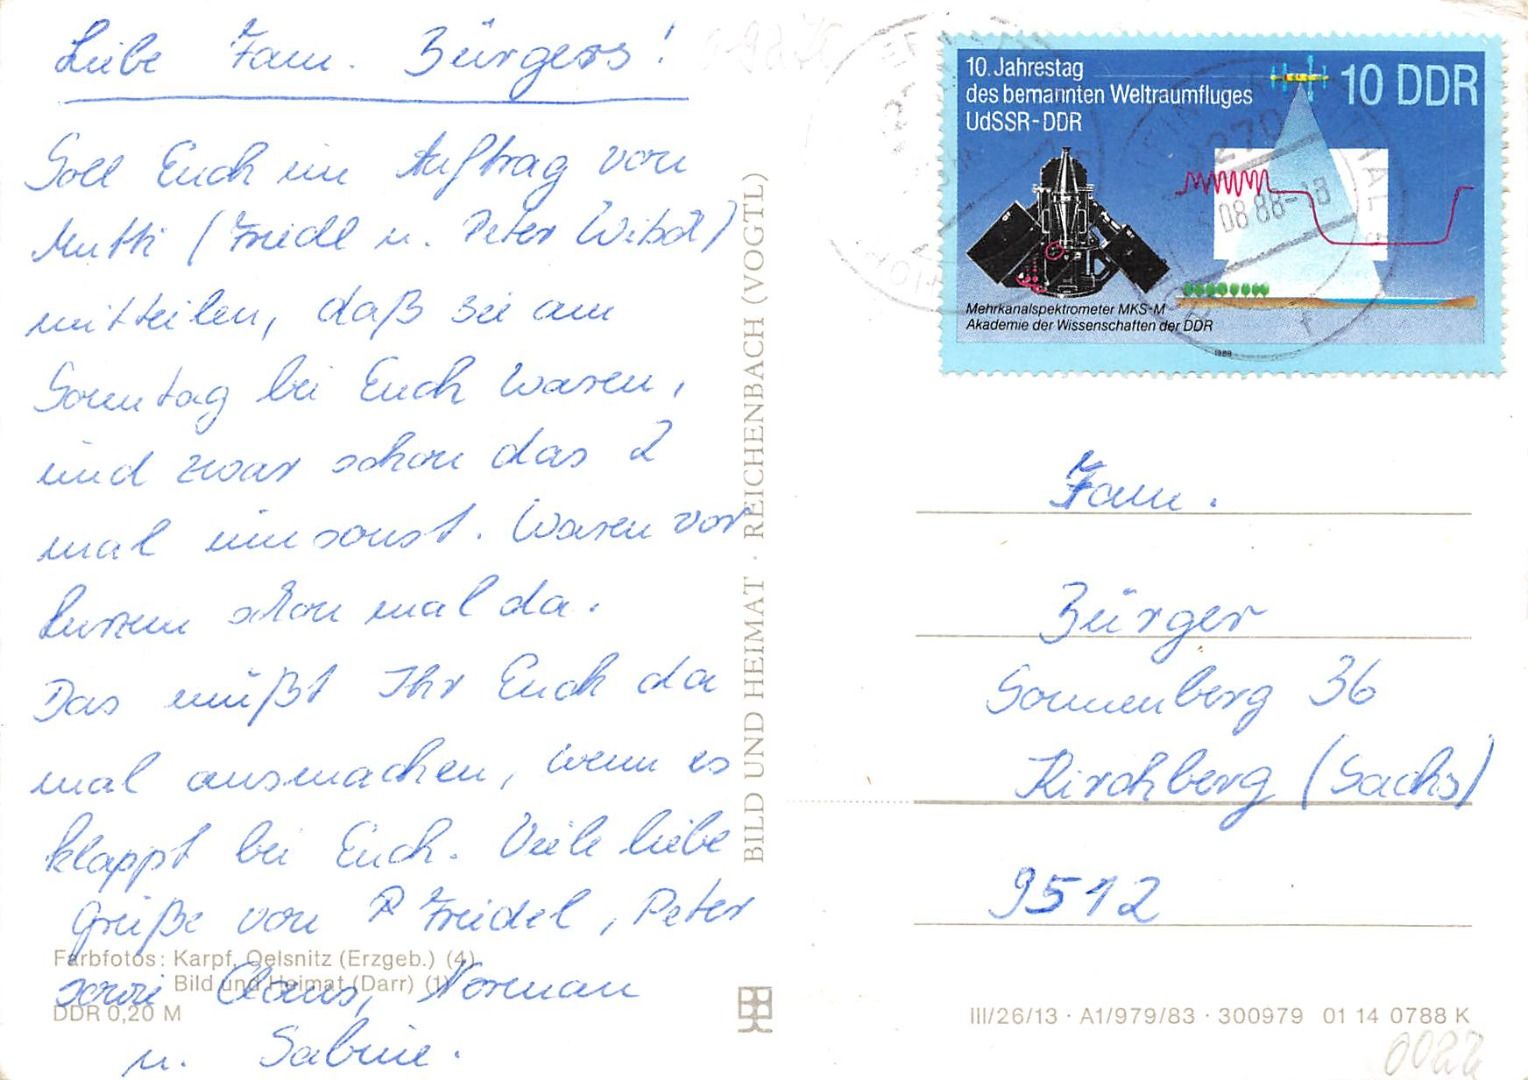 Liebe Fam. Bürgers!
Soll Euch im Auftrag von
Mutti (Friedl u. Peter
mitteilen, daß sie am
Sonntag bei Euch waren,
und zwar schon das 2
mal umsonst. Waren vor
kurzem schon mal da.
Das müßt Ihr Euch da
mal ausmachen, wenn es
klappt bei Euch. Viele liebe
Grüße von Friedel, Peter
sowie Claus, Norman
u. Sabine.
Farbfotos: Karpf, Oelsnitz (Erzgeb.) (4)
Bild und Heimat (Darr) (1)
DDR 0,20 M
BILD UND HEIMAT · REICHENBACH (VOGTL)
10. Jahrestag
des bemannten Weltraumfluges
UdSSR-DDR
10 DDR
Mehrkanalspektrometer MKS-M
Akademie der Wissenschaften der DDR
1988
08.88-18
Fam.
Bürger
Sonnenberg 36
Kirchberg (Sachs)
9512
III/26/13 · A1/979/83 · 300979 01 14 0788 K
0022